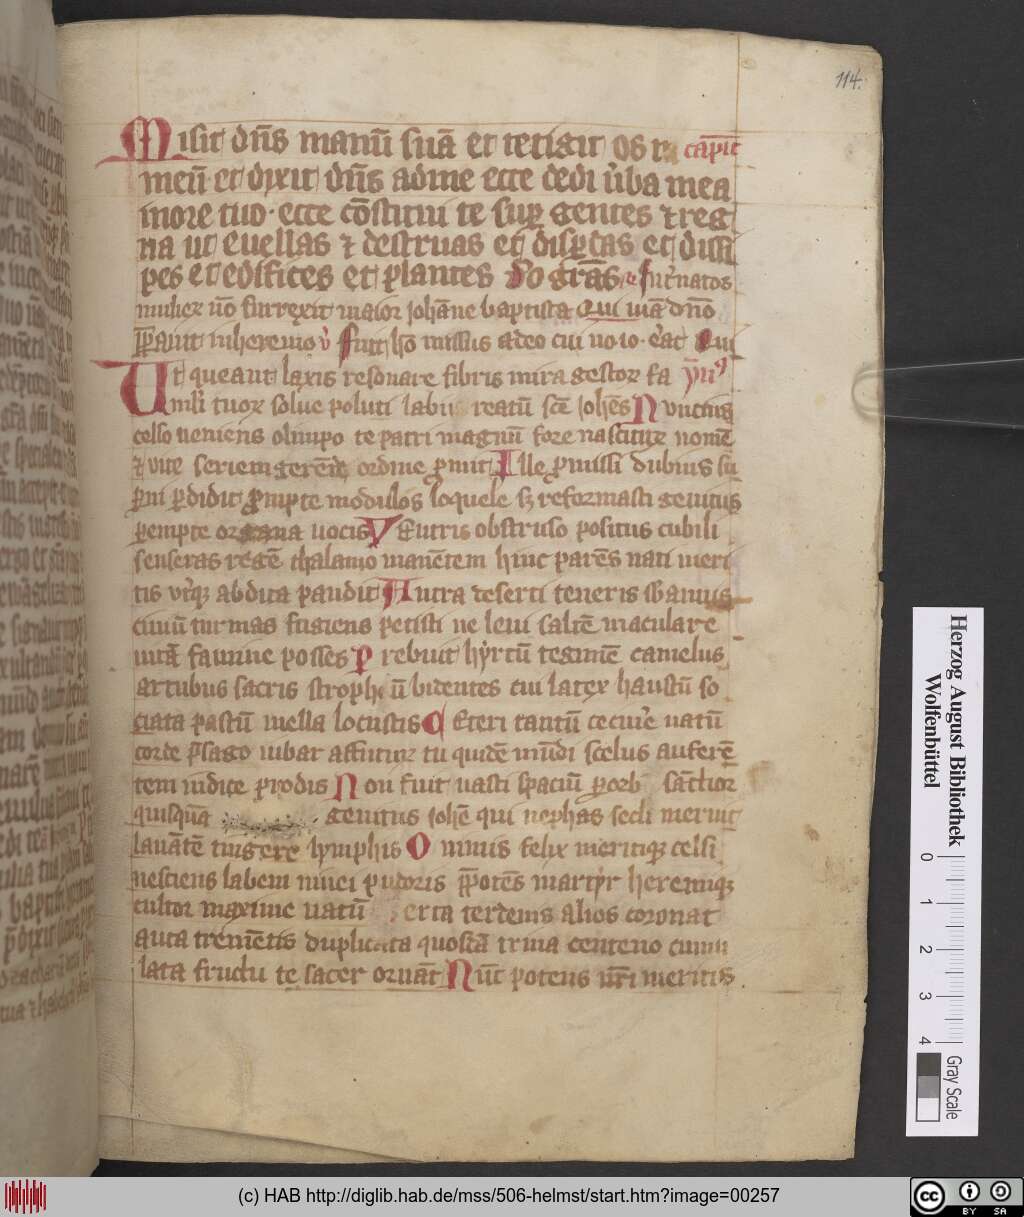 114.
Misit dn̄s manū suā et tetigit os capit̄
meū et dixit dn̄s ad me ecce dedi v̉ba mea
in ore tuo · ecce cōstitui te sup̱ gentes ⁊ reg
na ut euellas ⁊ destruas et disp̱das et dissi
pes et edifices et plantes Do grās Int̉ natos
mulier nō surrexit maior iohāne baptista Qui uiā dn̄o
p̄parauit in heremo v̉ Fuit hō missus a deo cui no io · erat Qui
Ut queant laxis resonare fibris mira gestor fa ymꝰ
muli tuor solue poluti labii reatū sc̄e ioh̄es Nuncius
celso ueniens olimpo te patri magnū fore nascitur nomē
⁊ vite seriem gerēde ordine p̱mit Ille p̱missi dubius su
p̱ni p̱didit p̱mpte modulos loquele sꝫ reformasti genitus
p̱empte organa uocis Ventris obstruso positus cubili
senseras regē thalamo manētem hinc parēs nati meri
tis vt̉qꝫ abdita pandit Antra deserti teneris sb annis
ciuiū turmas fugiens petisti ne leui saltē maculare
uitā famine posses Prebuit hyrtū tegimē camelus
artubus sacris strophiū bidentes cui latex haustū so
ciata pastū mella locustis Ceteri tantū cecin̉e uatū
corde p̄sago iubar affuturꝫ tu quidē mūdi scelus auferē
tem indice p̱rodis Non fuit uasti spaciū p̱ orb sāctior
quisquā genitus ioh̄e qui nephas secli meruit
lauātē tingere lymphis O nimis felix meritiqꝫ celsi
nesciens labem niuei pudoris p̄potēs martyr heremiqꝫ
cultor maxime uatū erta terdenis alios coronat
aucta cremētis duplicata quosdā trina centeno cumu
lata fructu te sacer ornāt Nūc potens nr̄i meritis
Herzog August Bibliothek
Wolfenbüttel
0 1 2 3 4
Gray Scale
(c) HAB http://diglib.hab.de/mss/506-helmst/start.htm?image=00257
cc BY SA